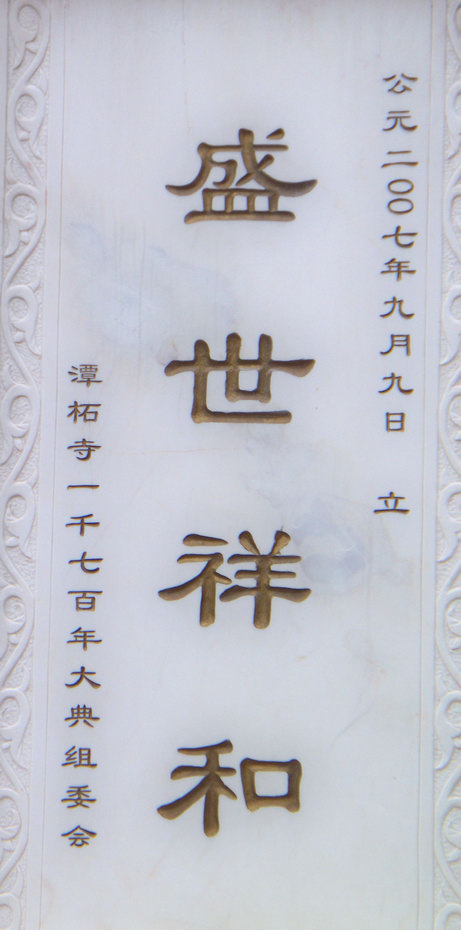 公元二〇〇七年九月九日 立
盛世祥和
潭柘寺一千七百年大典组委会